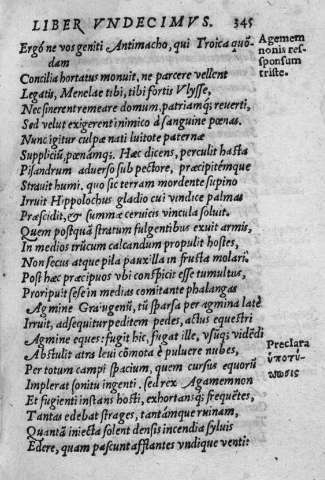 LIBER VNDECIMVS. 345
Ergó ne vos geniti Antimacho, qui Troica quõ-
dam
Agamem
nonis res-
sponsum
triste.
Concilia hortatus monuit, ne parcere vellent
Legatis, Menelae tibi, tibi fortis Vlysse,
Nec sinerent remeare domum, patriamq; reuerti,
Sed velut exigerent inimico à sanguine pœnas.
Nunc igitur culpæ nati luitote paternæ
Suppliciũ, pœnámq;. Hæc dicens, perculit hasta
Pisandrum aduerso sub pectore, præcipitémque
Strauit humi. quo sic terram mordente supino
Irruit Hippolochus gladio cui vndice palmas
Præscidit, & summæ ceruicis vincula soluit.
Quem postquã stratum fulgentibus exuit armis,
In medios trũcum calcandum propulit hostes,
Non secus atque pila pauxilla in frusta molari.
Post hæc præcipuos vbi conspicit esse tumultus,
Proripuit sese in medias comitante phalangas
Agmine Graiugenũ, tũ sparsa per agmina latè
Irruit, adsequitur peditem pedes, actus equestri
Agmine eques: fugit hic, fugat ille, vsq; vidẽdi
Abstulit atra leui cõmota è puluere nubes,
Præclara
ὑποτύ-
πωσις
Per totum campi spacium, quem cursus equorũ
Implerat sonitu ingenti. sed rex Agamemnon
Et fugienti instans hosti, exhortansq; frequẽtes,
Tantas edebat strages, tantámque ruinam,
Quantã iniecta solent densis incendia syluis
Edere, quam pascunt afflantes vndique venti: